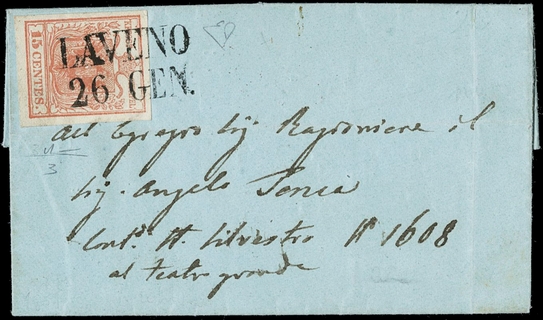 15 CENTES.
LAVENO
26 GEN.
All Egregio Sig Ragioniere il
Sig. Angelo
Cont.ª S. Silvestro N 1608
al teatro grande